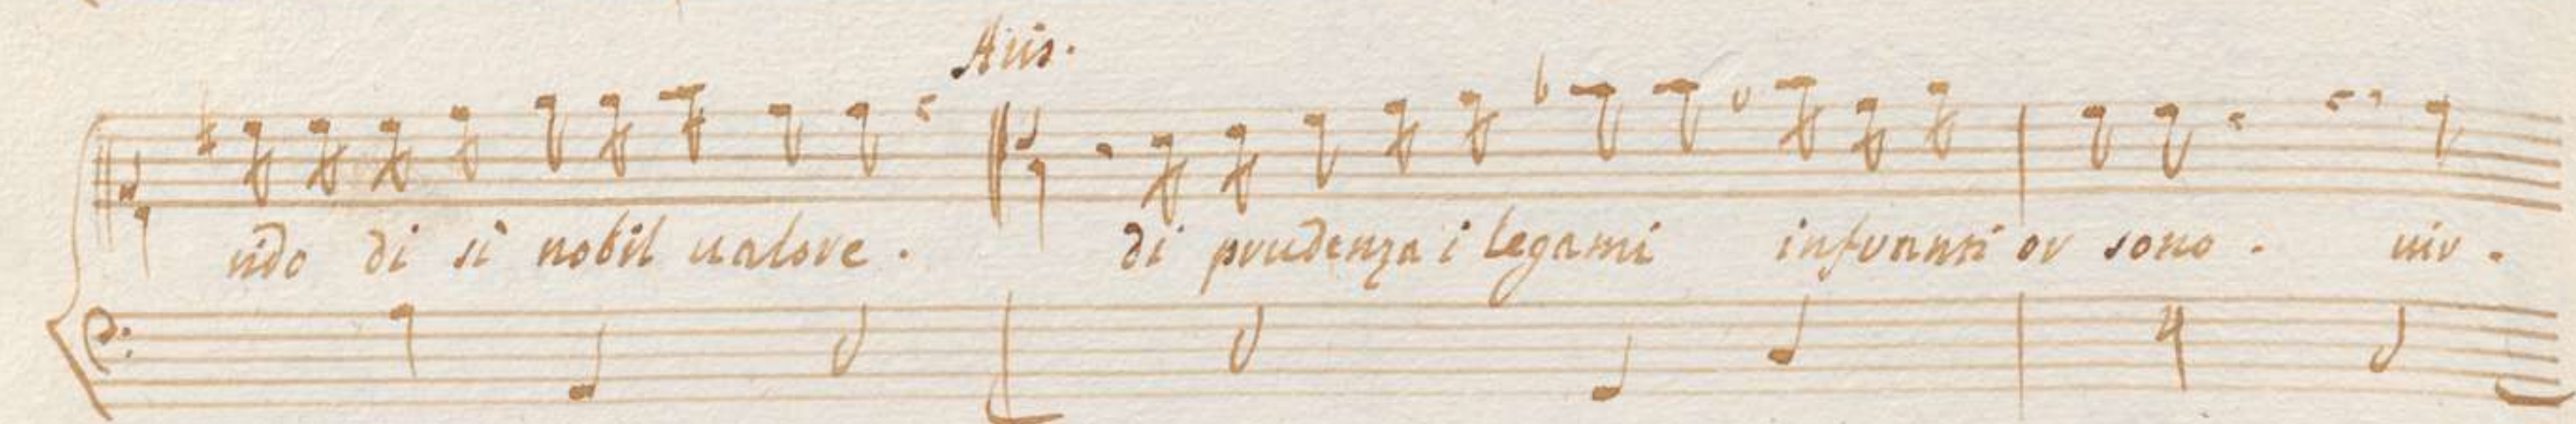 Aris.
uido di sì nobil ualore . di prudenza i legami infranti or sono . uir .